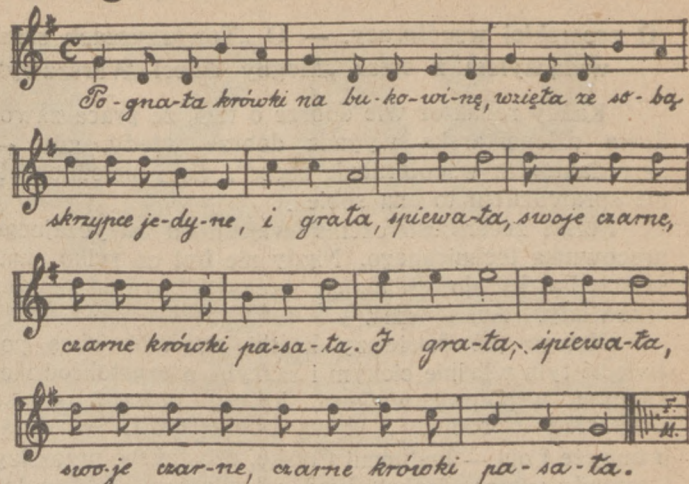 Po-gna-ła krówki na bu-ko-wi-nę, wzięła ze so-bą
skrzypce je-dy-ne, i grała, śpiewa-ła, swoje czarne,
czarne krówki pa-sa-ła. I gra-ła, śpiewa-ła,
swo-je czar-ne, czarne krówki pa-sa-ła.